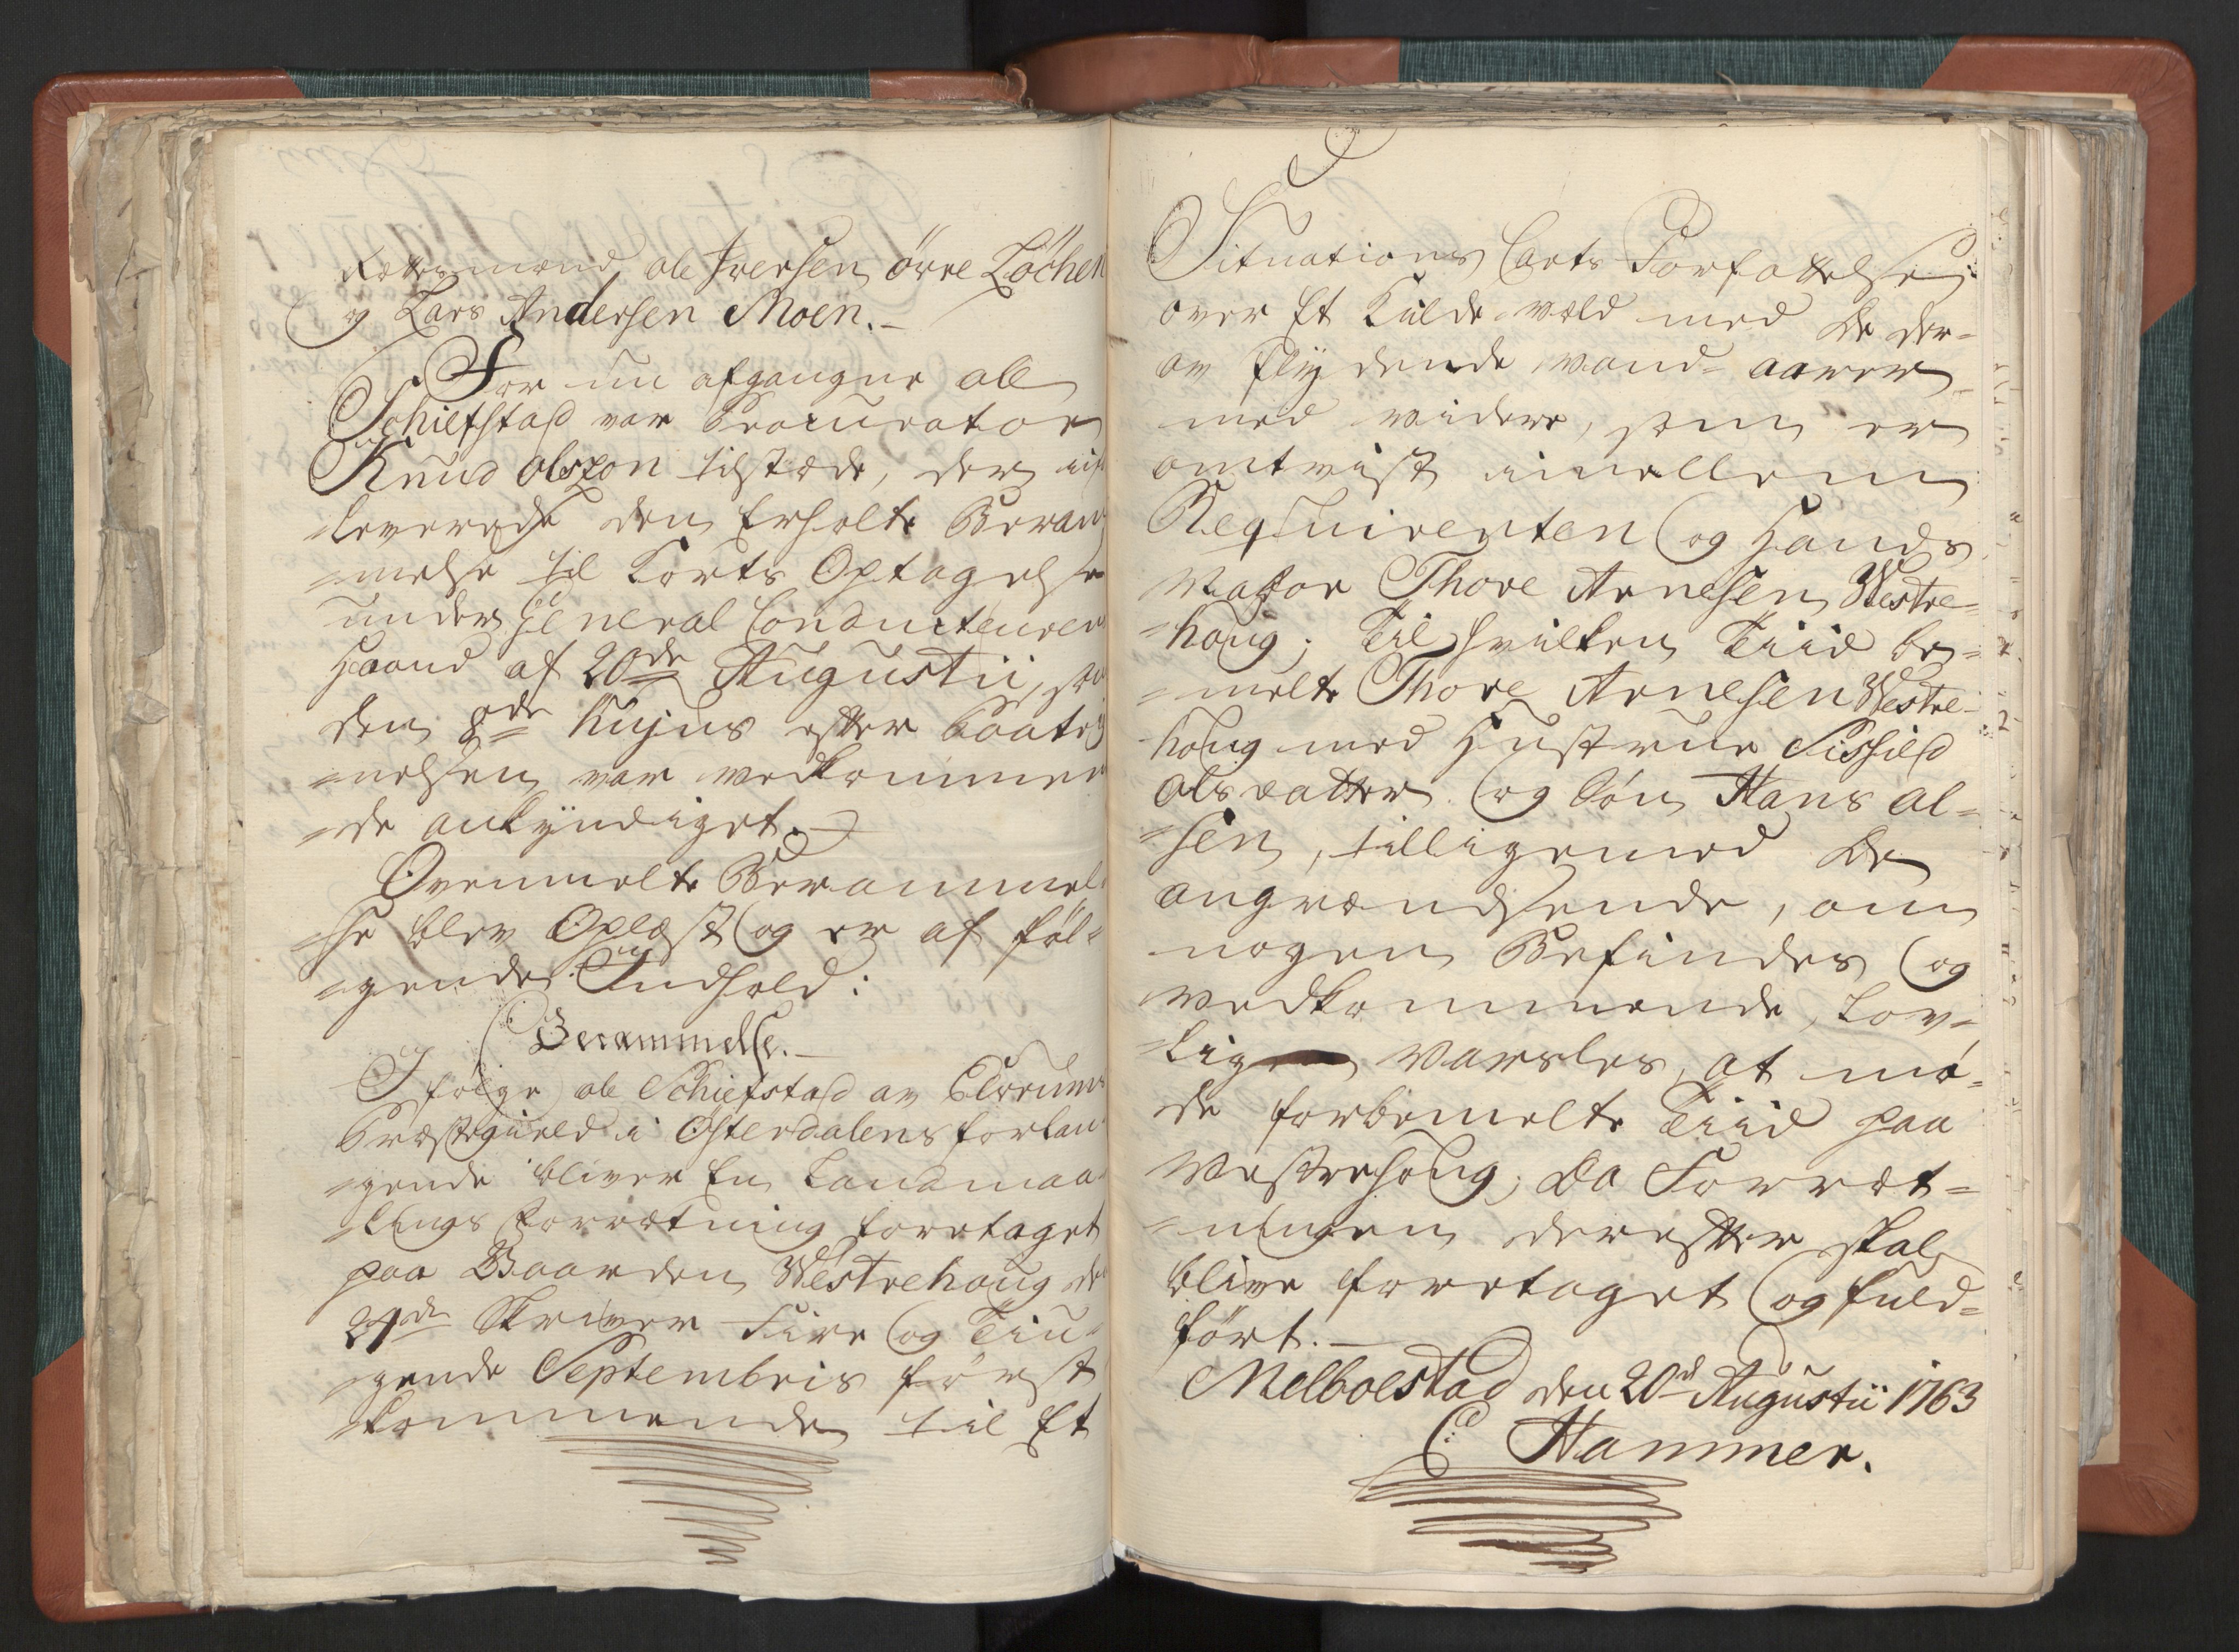 Lougrettemænd, ole Iversen öwre Löchen
og Lars Andersen Moen.-
For nu afgangne ole
Schiefstad var Procurator
Knud Olszon tilstæde, der ind
=leverede den Erholte Beram
=melse til Korts Optagelse
under General Conducteuren
Haand af 20de Augustii, som
den 8de hujus efter Paateg
=nelsen var vedkommen
=de ankyndiget.
Ovenmelte Berammel
=se blev Oplæst og er af föl=
=gende Indhold:
Berammelse.-
I fölge ole Schiefstad av Elverums
Præstegield i Österdalens forlan
=gende bliver En Landmaa
=lings Forrætning foretaget
paa Gaarden Westrehoug den
24de Skriver Fire og Tiu
=gende Septembris först
kommende til Et
Situations Carts Forfattelse
over Et Kilde-væld med de der=
av flydende vand-aarer
med videre, som er
omtvist imellem
Reqvirenten og Hands
Naboe Thore Arnesen Westre=
=houg; Til hvilken Tiid be=
=melte Thore Arnesen Westre-
houg med Hustrue Sissild
Olsdatter og Sön Hans Ol=
=sen, tilligemed de
angrændsende, om
nogen Befindes og
vedkommende, Lov=
=lig Varsles, at mö=
de forbemelte Tiid paa
Westrehoug; Da Forræt=
=ningen derefter skal
blive foretaget og fuld=
fört.-
Melboestad den 20de Augustii 1763
C: Hammer.